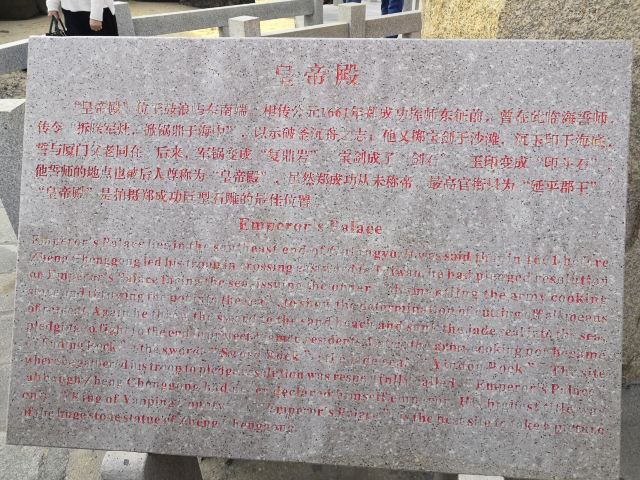 皇帝殿
"皇帝殿"位于鼓浪屿东南端，相传公元1661年郑成功挥师东征前，曾在此临海誓师，
传令"拆除军灶，掀锅鼎于海中"，以示破釜沉舟之志；他又掷宝剑于沙滩，沉玉印于海底，
誓与厦门父老同在 后来，军锅变成"复鼎岩" 宝剑成了"剑石" 玉印变成"印斗石"
他誓师的地点也被后人尊称为"皇帝殿"，虽然郑成功从未称帝 最高官衔只为"延平郡王"
"皇帝殿"是拍摄郑成功巨型石雕的最佳位置
Emperor's Palace
Emperor's Palace lies in the southeast end of Gulangyu. It was said that in 1661 before
Zheng Chenggong led his troup in crossing eastward to Taiwan, he had pledged resolution
on Emperor's Palace facing the sea, issuing the order "dismantling the army cooking
and throwing the pot into the sea" to show the determination of cutting off all means
of retreat. Again he threw the sword to the sand beach and sent the jade seal into the sea,
pledging to fight to the end to protect residents. Later the army cooking pot became
"Fuding Rock" the sword "Sword Rock" the jade seal "Yindou Rock" The site
where he gathered his troop to pledge resolution was respectfully called "Emperor's Palace"
although Zheng Chenggong had never declared himself emperor. His highest title was
only "King of Yanping" "Emperor's Palace" is the best site to take a picture
of the huge stone statue of Zheng Chenggong